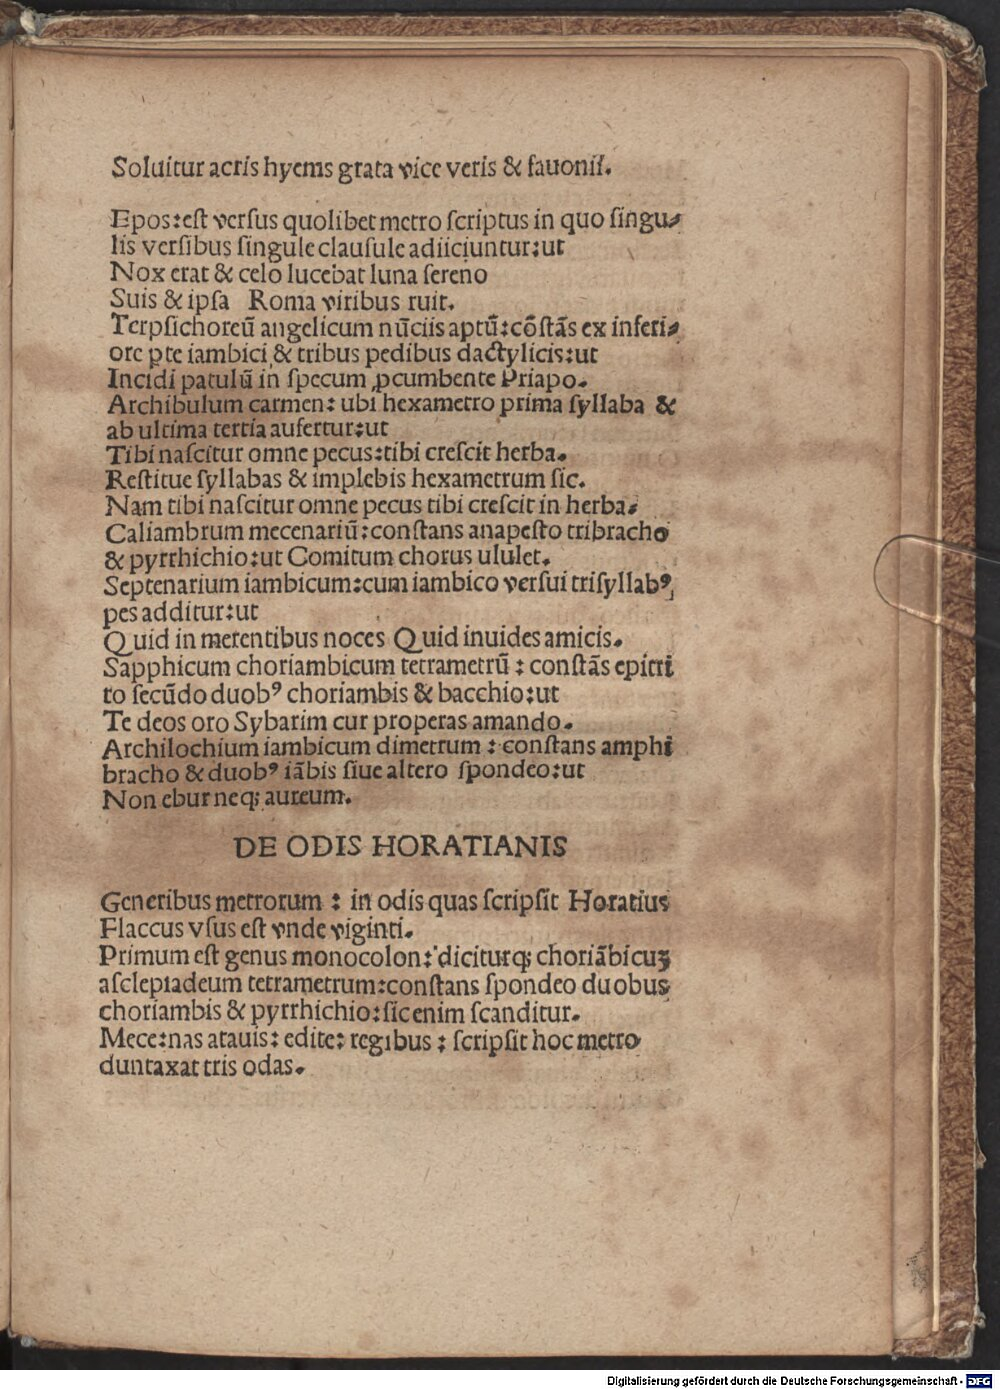 Soluitur acris hyems grata vice veris & fauonii.
Epos:est versus quolibet metro scriptus in quo singu-
lis versibus singule clausule adiiciuntur:ut
Nox erat & celo lucebat luna sereno
Suis & ipsa Roma viribus ruit.
Terpsichoreū angelicum nūciis aptū:cōstās ex inferi-
ore pte iambici & tribus pedibus dactylicis:ut
Incidi patulū in specum ꝓcumbente Priapo.
Archibulum carmen: ubi hexametro prima syllaba &
ab ultima tertia aufertur:ut
Tibi nascitur omne pecus:tibi crescit herba.
Restitue syllabas & implebis hexametrum sic.
Nam tibi nascitur omne pecus tibi crescit in herba.
Caliambrum mecenariū:constans anapesto tribracho
& pyrrhichio:ut Comitum chorus ululet.
Septenarium iambicum:cum iambico versui trisyllabꝰ
pes additur:ut
Quid in merentibus noces Quid inuides amicis.
Sapphicum choriambicum tetrametrū : constās epitri
to secūdo duobꝰ choriambis & bacchio:ut
Te deos oro Sybarim cur properas amando.
Archilochium iambicum dimetrum : constans amphi
bracho & duobꝰ iābis siue altero spondeo:ut
Non ebur neq; aureum.
DE ODIS HORATIANIS
Generibus metrorum : in odis quas scripsit Horatius
Flaccus vsus est vnde viginti.
Primum est genus monocolon:diciturq; choriābicuꝫ
asclepiadeum tetrametrum:constans spondeo duobus
choriambis & pyrrhichio:sic enim scanditur.
Mece:nas atauis: edite: regibus : scripsit hoc metro
duntaxat tris odas.
Digitalisierung gefördert durch die Deutsche Forschungsgemeinschaft - DFG